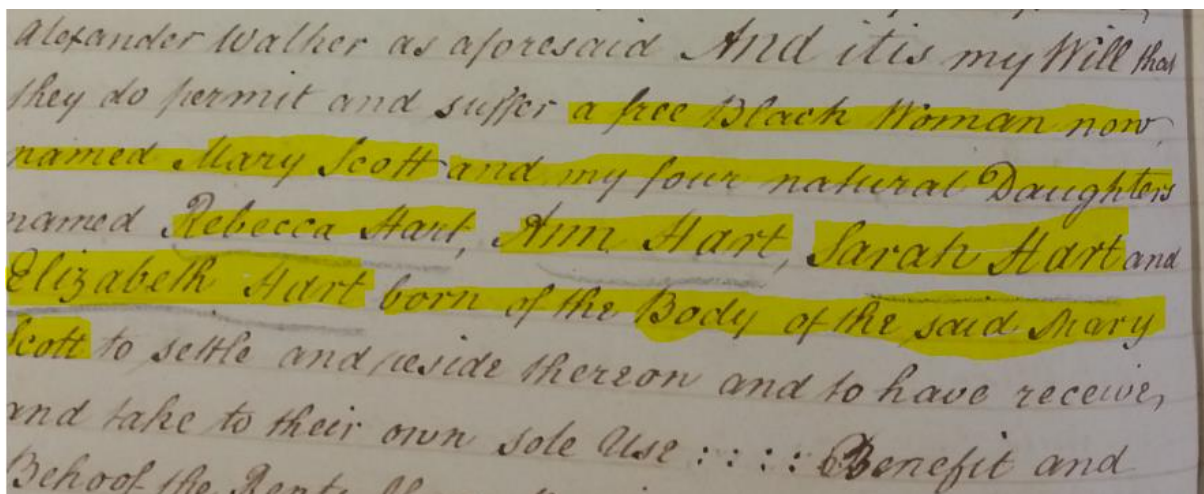 Alexander Walker as aforesaid And it is my Will that
they do permit and suffer a free Black Woman now
named Mary Scott and my four natural Daughters
named Rebecca Hart, Ann Hart, Sarah Hart and
Elizabeth Hart born of the Body of the said Mary
Scott to settle and reside thereon and to have receive,
and take to their own sole Use : : : : Benefit and
Behoof the Rents